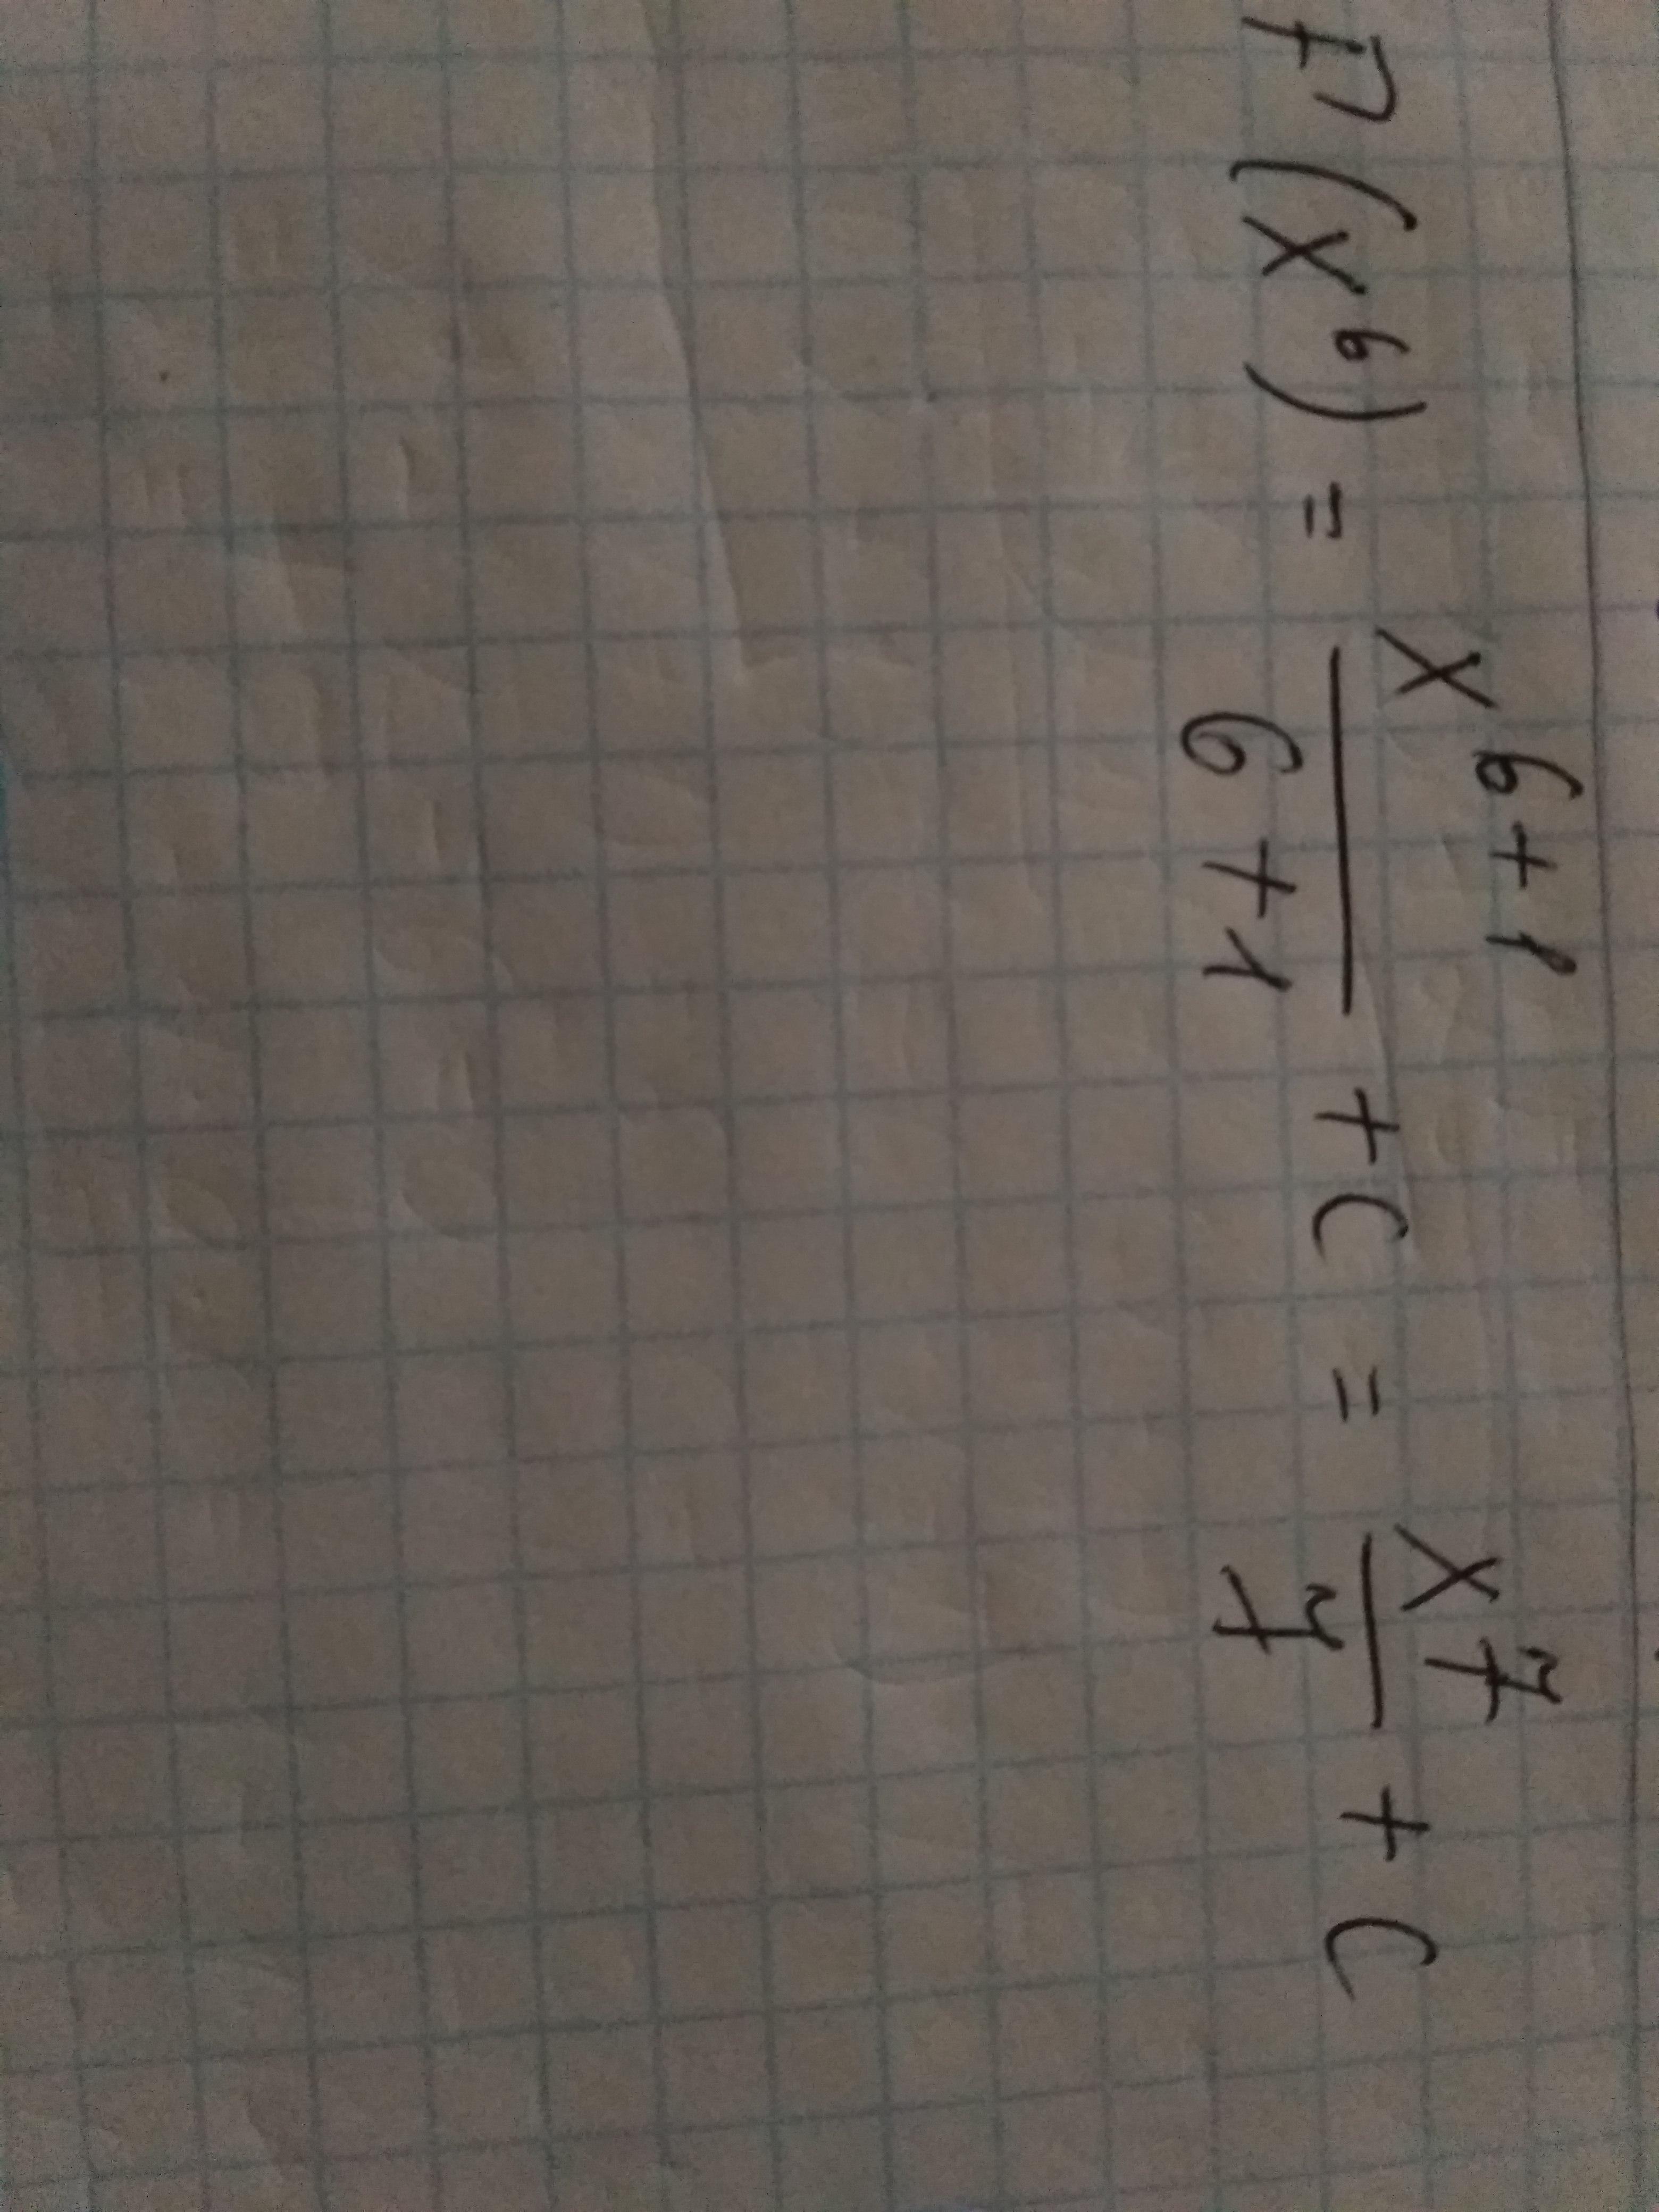 F(x⁶) = x⁶⁺¹/6+1 + C = x⁷/7 + C